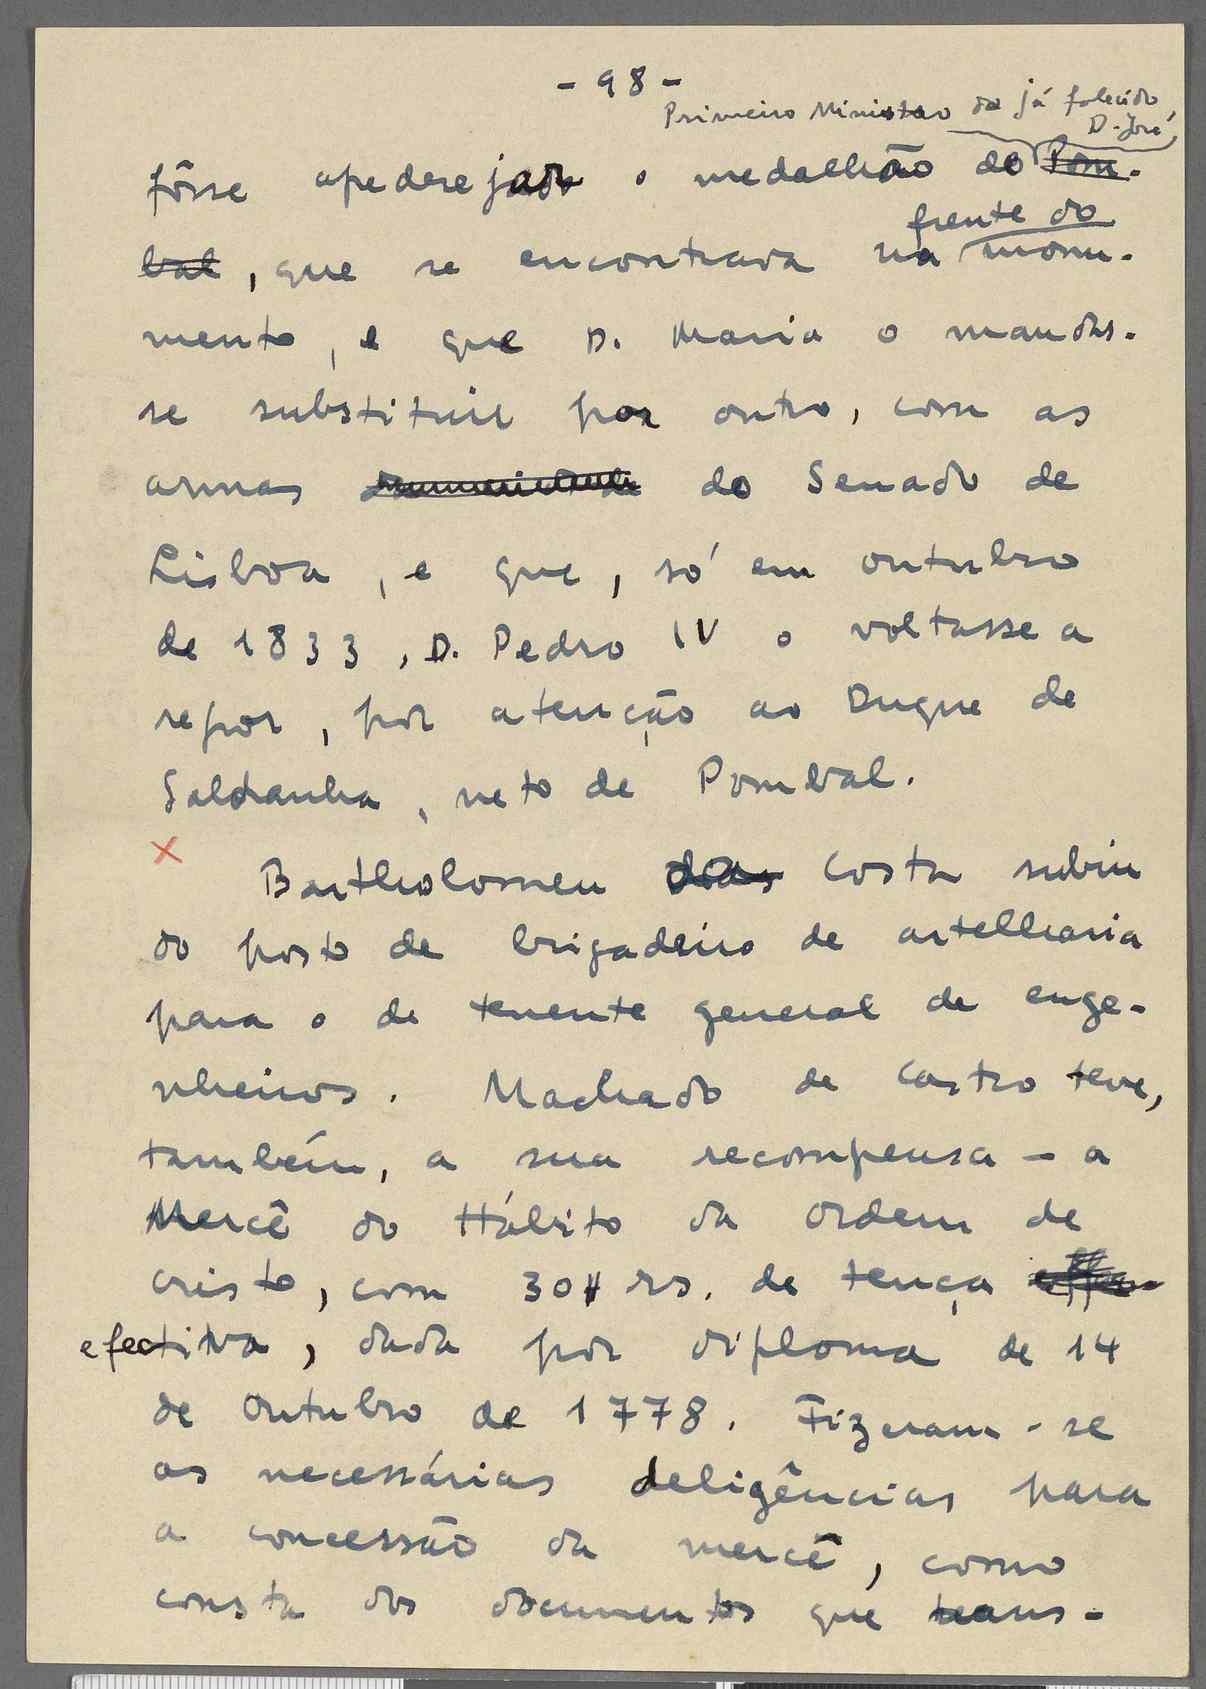 - 98 -
Primeiro Ministro do já falecido
D. José,
fôsse apederejado o medalhão do Pom-
frente do
bal, que se encontrava na monu-
mento, e que D. Maria o mandas-
se substituir por outro, com as
armas do Senado de
Lisboa, e que, só em outubro
de 1833, D. Pedro IV o voltasse a
repor, por atenção ao Duque de
Saldanha, neto de Pombal.
x
Bartholomeu da Costa subiu
do posto de brigadeiro de artelharia
para o de tenente general de enge-
nheiros. Machado de Castro teve,
também, a sua recompensa - a
Mercê do Hábito da Ordem de
Cristo, com 30# rs. de tença
efectiva, dada por diploma de 14
de Outubro de 1778. Fizeram-se
as necessárias deligências para
a concessão da mercê, como
consta dos documentos que trans-